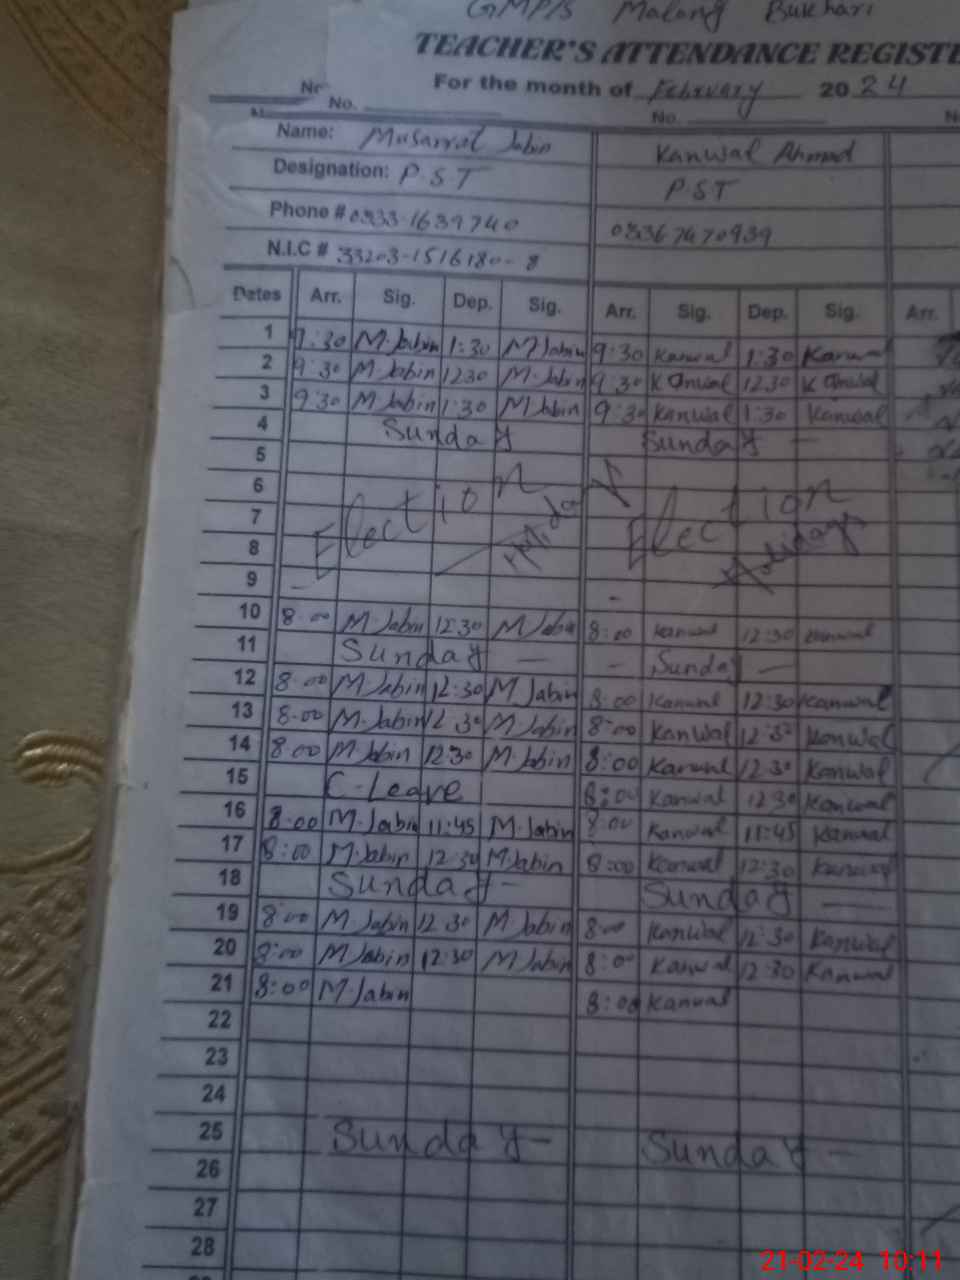 GMP/S Malang Bukhari
TEACHER'S ATTENDANCE REGISTE
For the month of February 20 24
No.
No. No.
Name: Musarrat Jabin Kanwal Ahmad
Designation: P S T P S T
Phone # 0333-1639740 03367470939
N.I.C # 33203-1516180-8
Dates Arr. Sig. Dep. Sig. Arr. Sig. Dep. Sig. Arr.
1 9:30 M.Jabin 1:30 M.Jabin 9:30 Kanwal 1:30 Kanwal
2 9:30 M.Jabin 12:30 M.Jabin 9:30 Kanwal 12:30 Kanwal
3 9:30 M.Jabin 1:30 M.Jabin 9:30 Kanwal 1:30 Kanwal
4 Sunday Sunday —
5
6
7 Election Holiday Election Holidays
8
9
10 8:00 M.Jabin 12:30 M.Jabin 8:00 Kanwal 12:30 Kanwal
11 Sunday — - Sunday —
12 8:00 M.Jabin 12:30 M.Jabin 8:00 Kanwal 12:30 Kanwal
13 8:00 M.Jabin 12:30 M.Jabin 8:00 Kanwal 12:30 Kanwal
14 8:00 M.Jabin 12:30 M.Jabin 8:00 Kanwal 12:30 Kanwal
15 C-Leave 8:00 Kanwal 12:30 Kanwal
16 8:00 M.Jabin 11:45 M.Jabin 8:00 Kanwal 11:45 Kanwal
17 8:00 M.Jabin 12:30 M.Jabin 8:00 Kanwal 12:30 Kanwal
18 Sunday - Sunday —
19 8:00 M.Jabin 12:30 M.Jabin 8:00 Kanwal 12:30 Kanwal
20 8:00 M.Jabin 12:30 M.Jabin 8:00 Kanwal 12:30 Kanwal
21 8:00 M.Jabin 8:00 Kanwal
22
23
24
25 Sunday - Sunday —
26
27
28
21-02-24 10:11